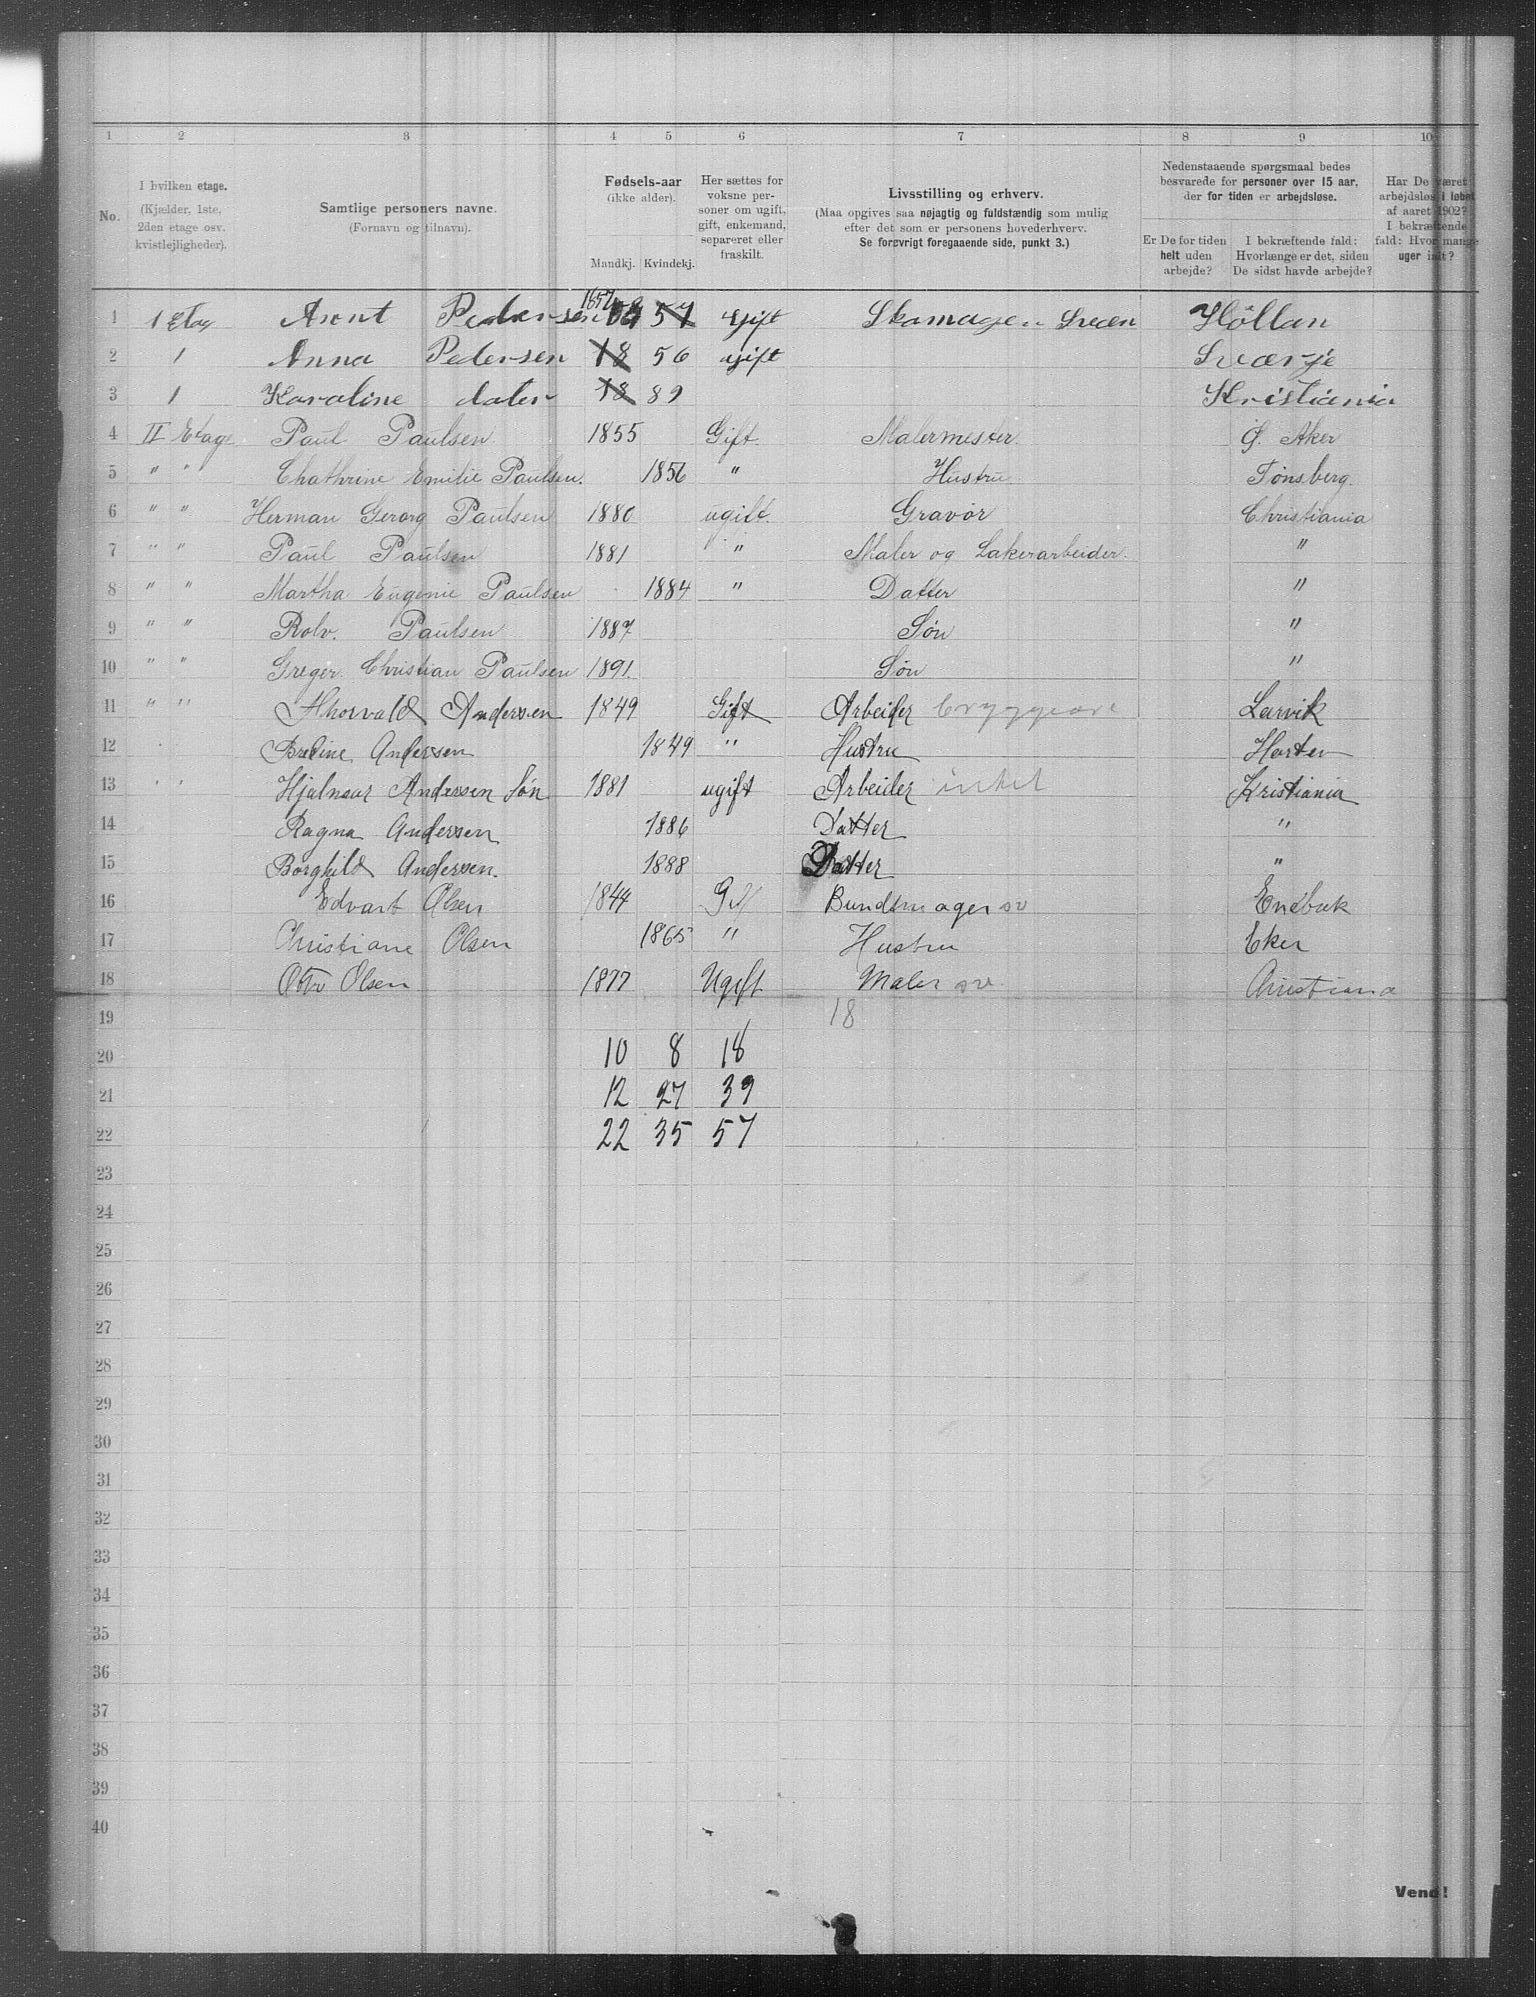 1 2 3 4 5 6 7 8 9 10
No.
I hvilken etage.
(Kjælder, 1ste,
2den etage osv.
kvistlejligheder).
Samtlige personers navne.
(Fornavn og tilnavn).
Fødsels-aar
(ikke alder).
Mandkj. Kvindekj.
Her sættes for
voksne per-
soner om ugift,
gift, enkemand,
separeret eller
fraskilt.
Livsstilling og erhverv.
(Maa opgives saa nøjagtig og fuldstændig som mulig
efter det som er personens hovederhverv.
Se forøvrigt foregaaende side, punkt 3.)
Nedenstaaende spørgsmaal bedes
besvarede for personer over 15 aar,
der for tiden er arbejdsløse.
Er De for tiden
helt uden
arbejde?
I bekræftende fald:
Hvorlænge er det, siden
De sidst havde arbejde?
Har De været
arbejdsløs i løbet
af aaret 1902?
I bekræftende
fald: Hvor mange
uger ialt?
1 1 Etag Arent Pedersen 1857 57 Gift Skomager Sveen Höllan
2 1 Anna Pedersen 18 56 gift Sværje
3 1 Karoline dater 18 89 Kristiania
4 II Etage Paul Paulsen 1855 Gift Malermester Ø. Aker
5 " " Chathrine Emilie Paulsen. 1856 " Hustru Tønsberg.
6 " " Herman Gerorg Paulsen 1880 ugift. Gravør Christiania
7 " " Paul Paulsen 1881 " Maler og Lakerarbeider. "
8 " " Martha Eugenie Paulsen 1884 " Datter "
9 " " Rolv. Paulsen 1887 Søn "
10 " " Greger Christian Paulsen 1891. Søn "
11 " " Thorvald Andersen 1849 Gift Arbeider bryggeare Larvik
12 Bredine Andersen 1849 " Hustru Horten
13 " " Hjalmar Andersen Søn 1881 ugift Arbeider intet Kristiania
14 Ragna Andersen 1886 Datter "
15 Borghild Andersen. 1888 Datter "
16 Edvart Olsen 1844 Gift Bundtmager sv Enebak
17 Christiane Olsen 1865 " Hustru Eker
18 Otto Olsen 1877 Ugift Maler sve Christiana
19 18
20 10 8 18
21 12 27 39
22 22 35 57
23
24
25
26
27
28
29
30
31
32
33
34
35
36
37
38
39
40
Vend!